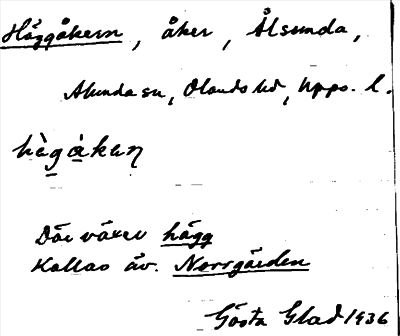 Häggåkern, åker, Ålsunda,
Alunda sn, Olands hd, Upps. l.
hègàken
Där växer hägg
Kallas äv. Norrgärden
Gösta Glad 1936